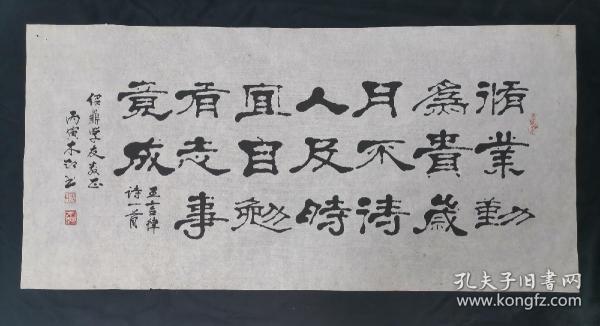 脩業勤
為貴歲
月不待
人及時
宜自勉
有志事
竟成
五言律
诗一首
鼎学友教正
丙寅木 书
孔夫子旧书网
www.kongfz.com